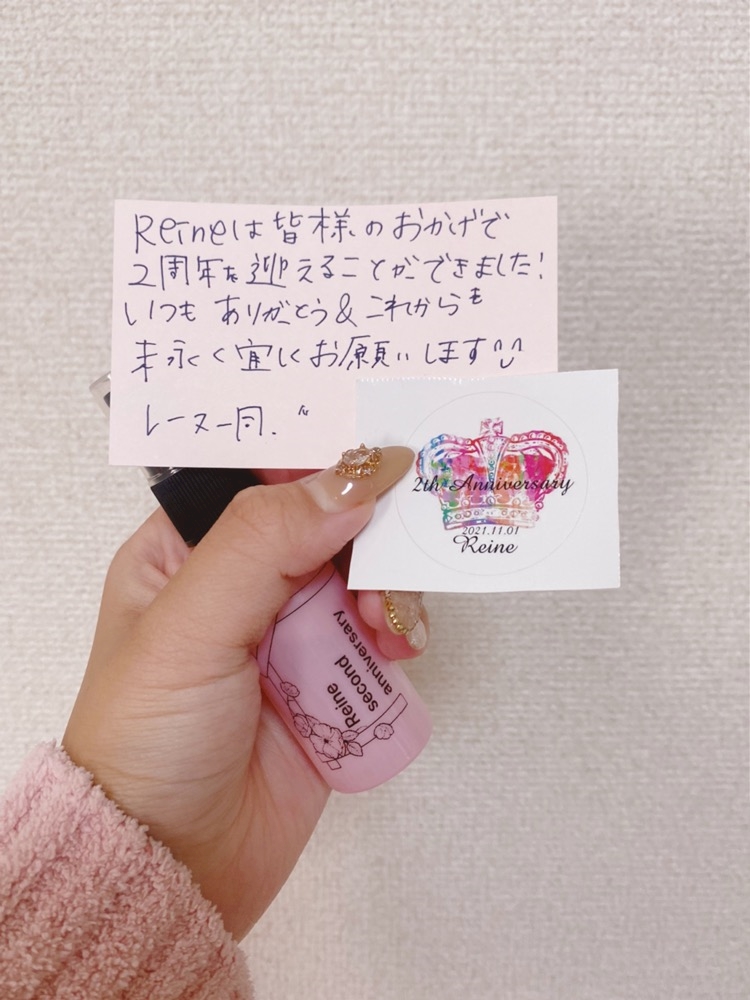 Reineは皆様のおかげで
2周年を迎えることができました!
いつもありがとう&これからも
末永く宜しくお願いします
レーヌ一同.
2th Anniversary
2021.11.01
Reine
Reine
second
anniversary